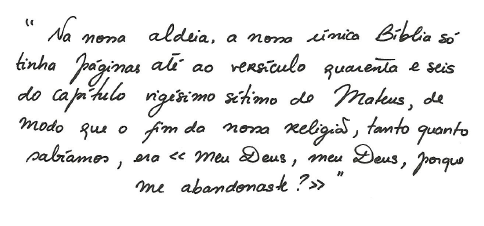 " Na nossa aldeia, a nossa única Bíblia só
tinha páginas até ao versículo quarenta e seis
do capítulo vigésimo sétimo de Mateus, de
modo que o fim da nossa religião, tanto quanto
sabíamos, era << Meu Deus, meu Deus, porque
me abandonaste?>> "